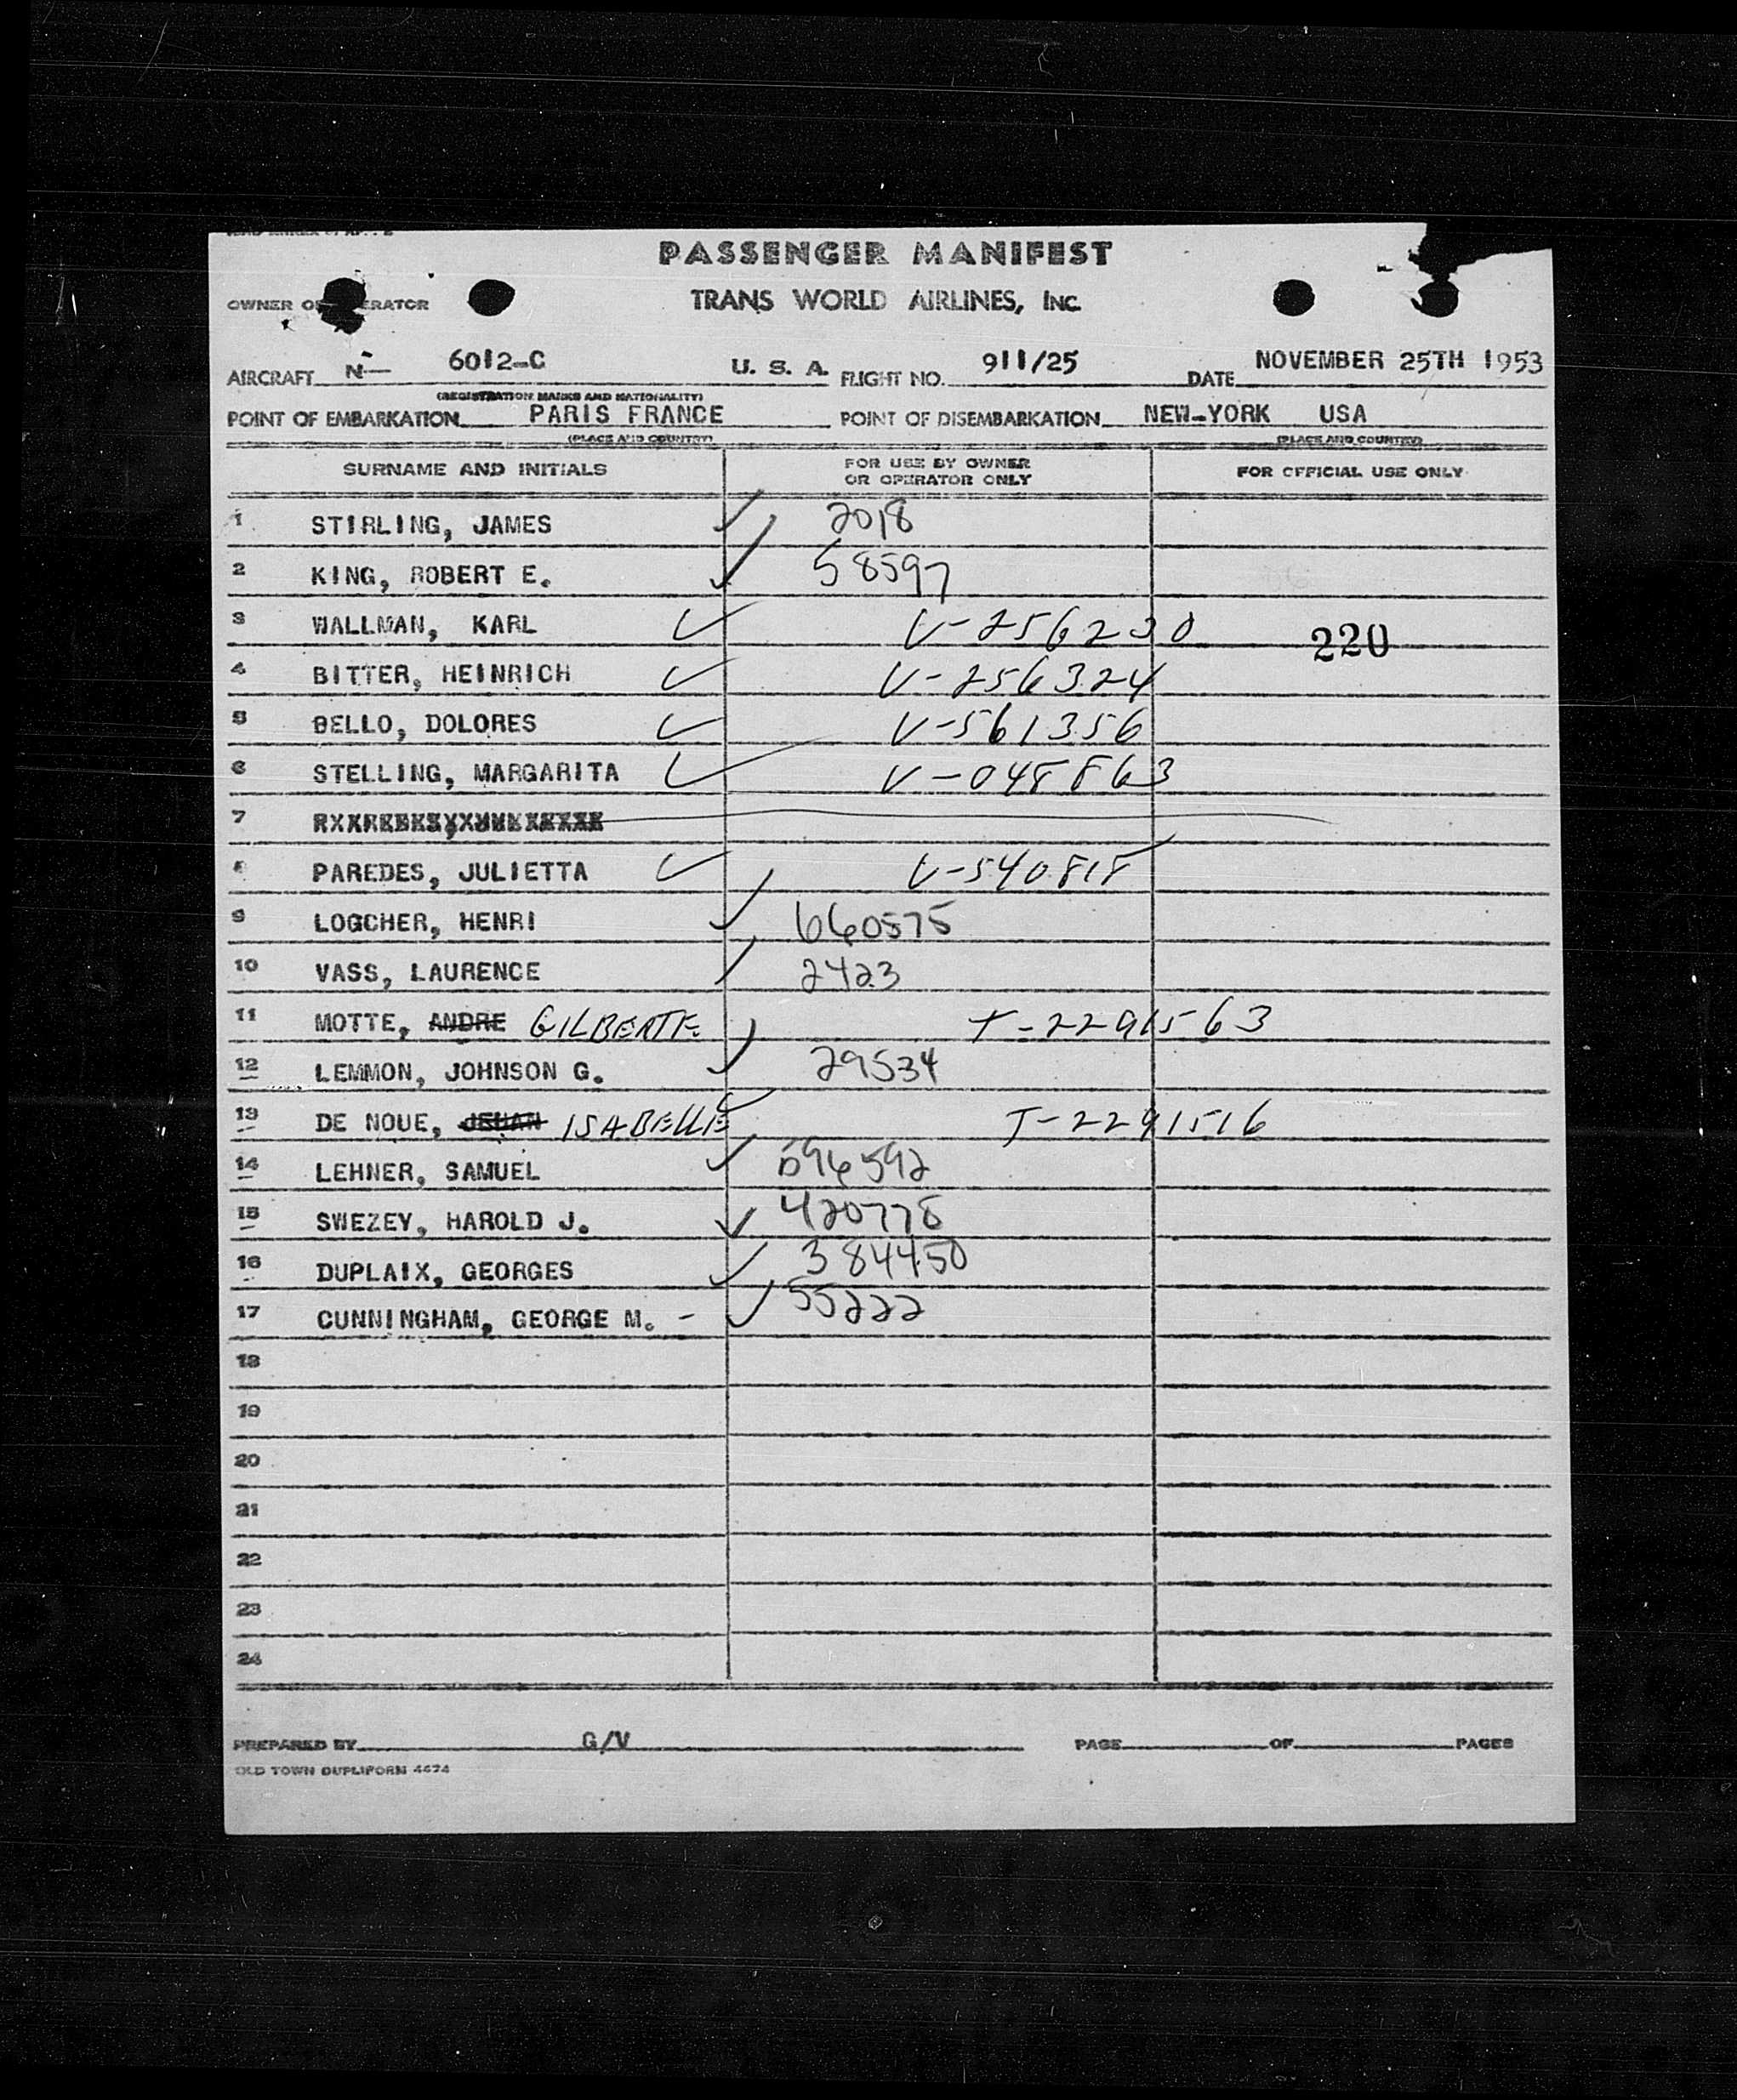 PASSENGER MANIFEST
OWNER OR OPERATOR TRANS WORLD AIRLINES, INC.
AIRCRAFT N- 6012-C U. S. A. FLIGHT NO. 911/25 DATE NOVEMBER 25TH 1953
(REGISTRATION MARKS AND NATIONALITY)
POINT OF EMBARKATION PARIS FRANCE POINT OF DISEMBARKATION NEW-YORK USA
(PLACE AND COUNTRY) (PLACE AND COUNTRY)
SURNAME AND INITIALS FOR USE BY OWNER OR OPERATOR ONLY FOR OFFICIAL USE ONLY
1 STIRLING, JAMES 2018
2 KING, ROBERT E. 58597
3 WALLMAN, KARL V-256230 220
4 BITTER, HEINRICH V-256324
5 BELLO, DOLORES V-561356
6 STELLING, MARGARITA V-048863
7
8 PAREDES, JULIETTA V-540818
9 LOGCHER, HENRI 660575
10 VASS, LAURENCE 2423
11 MOTTE, ANDRE GILBERTE T-2291563
12 LEMMON, JOHNSON G. 29534
13 DE NOUE, JEHAN ISABELLE T-2291516
14 LEHNER, SAMUEL 596592
15 SWEZEY, HAROLD J. 420778
16 DUPLAIX, GEORGES 384450
17 CUNNINGHAM, GEORGE M. - 55222
18
19
20
21
22
23
24
PREPARED BY G/V PAGE OF PAGES
OLD TOWN DUPLIFORM 4474